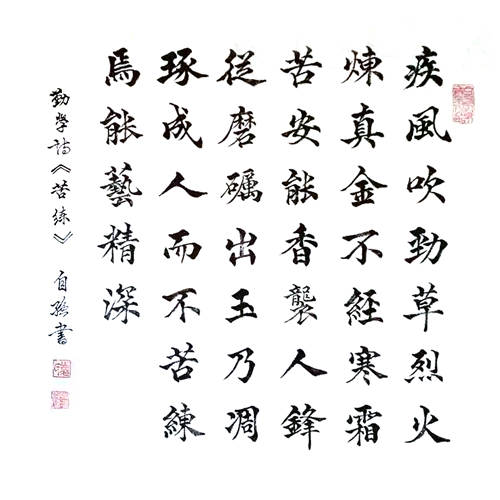 疾風吹勁草烈火
煉真金不經寒霜
苦安能香襲人鋒
從磨礪出玉乃凋
琢成人而不苦練
焉能藝精深
勤学詩《苦練》 自書